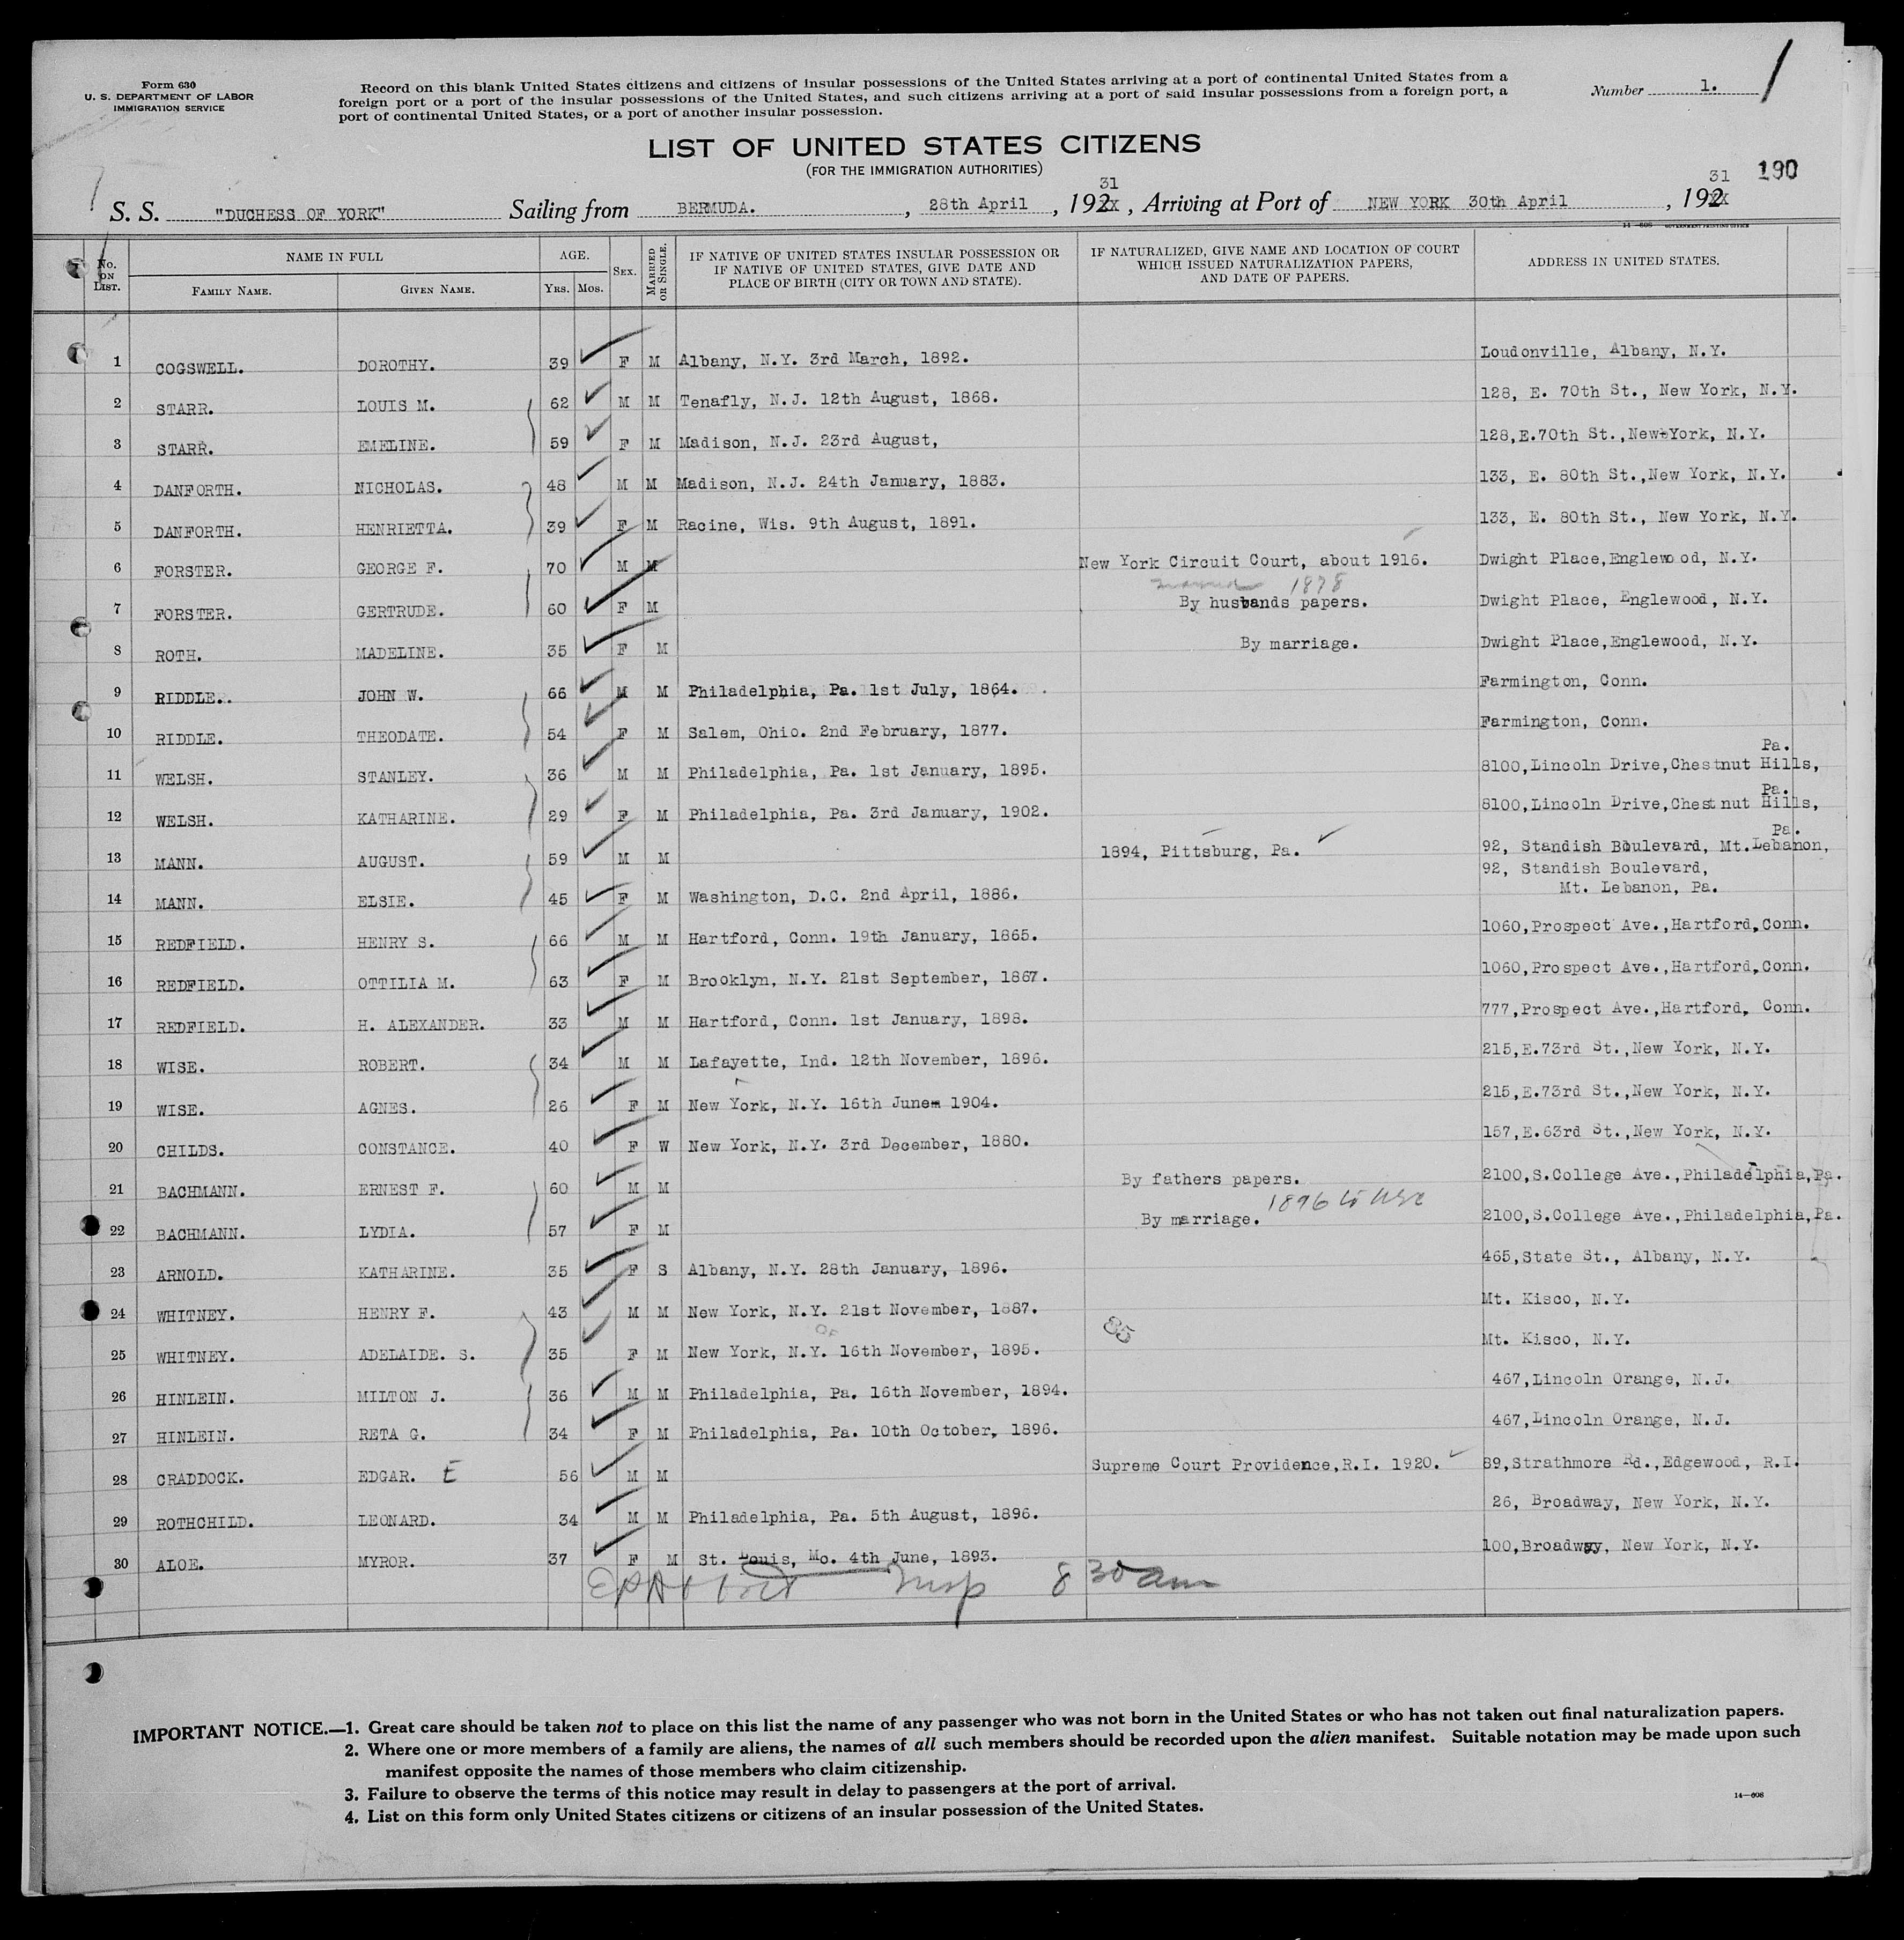 Form 630
U. S. DEPARTMENT OF LABOR
IMMIGRATION SERVICE
Record on this blank United States citizens and citizens of insular possessions of the United States arriving at a port of continental United States from a
foreign port or a port of the insular possessions of the United States, and such citizens arriving at a port of said insular possessions from a foreign port, a
port of continental United States, or a port of another insular possession.
Number 1. 1
LIST OF UNITED STATES CITIZENS
(FOR THE IMMIGRATION AUTHORITIES)
190
S. S. "DUCHESS OF YORK" Sailing from BERMUDA. , 28th April , 192XX 31 , Arriving at Port of NEW YORK 30th April , 192XX 31
14—608 GOVERNMENT PRINTING OFFICE
No. ON LIST. NAME IN FULL AGE. SEX. MARRIED OR SINGLE. IF NATIVE OF UNITED STATES INSULAR POSSESSION OR IF NATIVE OF UNITED STATES, GIVE DATE AND PLACE OF BIRTH (CITY OR TOWN AND STATE). IF NATURALIZED, GIVE NAME AND LOCATION OF COURT WHICH ISSUED NATURALIZATION PAPERS, AND DATE OF PAPERS. ADDRESS IN UNITED STATES.
FAMILY NAME. GIVEN NAME. YRS. MOS.
1 COGSWELL. DOROTHY. 39 F M Albany, N.Y. 3rd March, 1892. Loudonville, Albany, N.Y.
2 STARR. LOUIS M. 62 M M Tenafly, N.J. 12th August, 1868. 128, E. 70th St., New York, N.Y.
3 STARR. EMELINE. 59 F M Madison, N.J. 23rd August, 128,E.70th St.,New York, N.Y.
4 DANFORTH. NICHOLAS. 48 M M Madison, N.J. 24th January, 1883. 133, E. 80th St.,New York, N.Y.
5 DANFORTH. HENRIETTA. 39 F M Racine, Wis. 9th August, 1891. 133, E. 80th St., New York, N.Y.
6 FORSTER. GEORGE F. 70 M M New York Circuit Court, about 1916. Dwight Place,Englewood, N.Y.
married 1878
7 FORSTER. GERTRUDE. 60 F M By husbands papers. Dwight Place, Englewood, N.Y.
8 ROTH. MADELINE. 35 F M By marriage. Dwight Place,Englewood, N.Y.
9 RIDDLE.. JOHN W. 66 M M Philadelphia, Pa. 1st July, 1864. Farmington, Conn.
10 RIDDLE. THEODATE. 54 F M Salem, Ohio. 2nd February, 1877. Farmington, Conn.
Pa.
11 WELSH. STANLEY. 36 M M Philadelphia, Pa. 1st January, 1895. 8100,Lincoln Drive,Chestnut Hills,
Pa.
12 WELSH. KATHARINE. 29 F M Philadelphia, Pa. 3rd January, 1902. 8100,Lincoln Drive,Chestnut Hills,
Pa.
13 MANN. AUGUST. 59 M M 1894, Pittsburg, Pa. 92, Standish Boulevard, Mt.Lebanon,
92, Standish Boulevard,
14 MANN. ELSIE. 45 F M Washington, D.C. 2nd April, 1886. Mt. Lebanon, Pa.
15 REDFIELD. HENRY S. 66 M M Hartford, Conn. 19th January, 1865. 1060,Prospect Ave.,Hartford,Conn.
16 REDFIELD. OTTILIA M. 63 F M Brooklyn, N.Y. 21st September, 1867. 1060,Prospect Ave.,Hartford,Conn.
17 REDFIELD. H. ALEXANDER. 33 M M Hartford, Conn. 1st January, 1898. 777,Prospect Ave.,Hartford, Conn.
18 WISE. ROBERT. 34 M M Lafayette, Ind. 12th November, 1896. 215,E.73rd St.,New York, N.Y.
19 WISE. AGNES. 26 F M New York, N.Y. 16th June 1904. 215,E.73rd St.,New York, N.Y.
20 CHILDS. CONSTANCE. 40 F W New York, N.Y. 3rd December, 1880. 157,E.63rd St.,New York, N.Y.
21 BACHMANN. ERNEST F. 60 M M By fathers papers. 2100,S.College Ave.,Philadelphia,Pa.
1896 to USA
22 BACHMANN. LYDIA. 57 F M By marriage. 2100,S.College Ave.,Philadelphia,Pa.
23 ARNOLD. KATHARINE. 35 F S Albany, N.Y. 28th January, 1896. 465,State St., Albany, N.Y.
24 WHITNEY. HENRY F. 43 M M New York, N.Y. 21st November, 1887. Mt. Kisco, N.Y.
85
25 WHITNEY. ADELAIDE. S. 35 F M New York, N.Y. 16th November, 1895. Mt. Kisco, N.Y.
26 HINLEIN. MILTON J. 36 M M Philadelphia, Pa. 16th November, 1894. 467,Lincoln Orange, N.J.
27 HINLEIN. RETA G. 34 F M Philadelphia, Pa. 10th October, 1896. 467,Lincoln Orange, N.J.
28 CRADDOCK. EDGAR. E 56 M M Supreme Court Providence,R.I. 1920. 89,Strathmore Rd.,Edgewood, R.I.
29 ROTHCHILD. LEONARD. 34 M M Philadelphia, Pa. 5th August, 1896. 26, Broadway, New York, N.Y.
30 ALOE. MYROR. 37 F M St. Louis, Mo. 4th June, 1893. 100,Broadway, New York, N.Y.
Insp 8 30 am
IMPORTANT NOTICE.—1. Great care should be taken not to place on this list the name of any passenger who was not born in the United States or who has not taken out final naturalization papers.
2. Where one or more members of a family are aliens, the names of all such members should be recorded upon the alien manifest. Suitable notation may be made upon such
manifest opposite the names of those members who claim citizenship.
3. Failure to observe the terms of this notice may result in delay to passengers at the port of arrival.
4. List on this form only United States citizens or citizens of an insular possession of the United States.
14—608